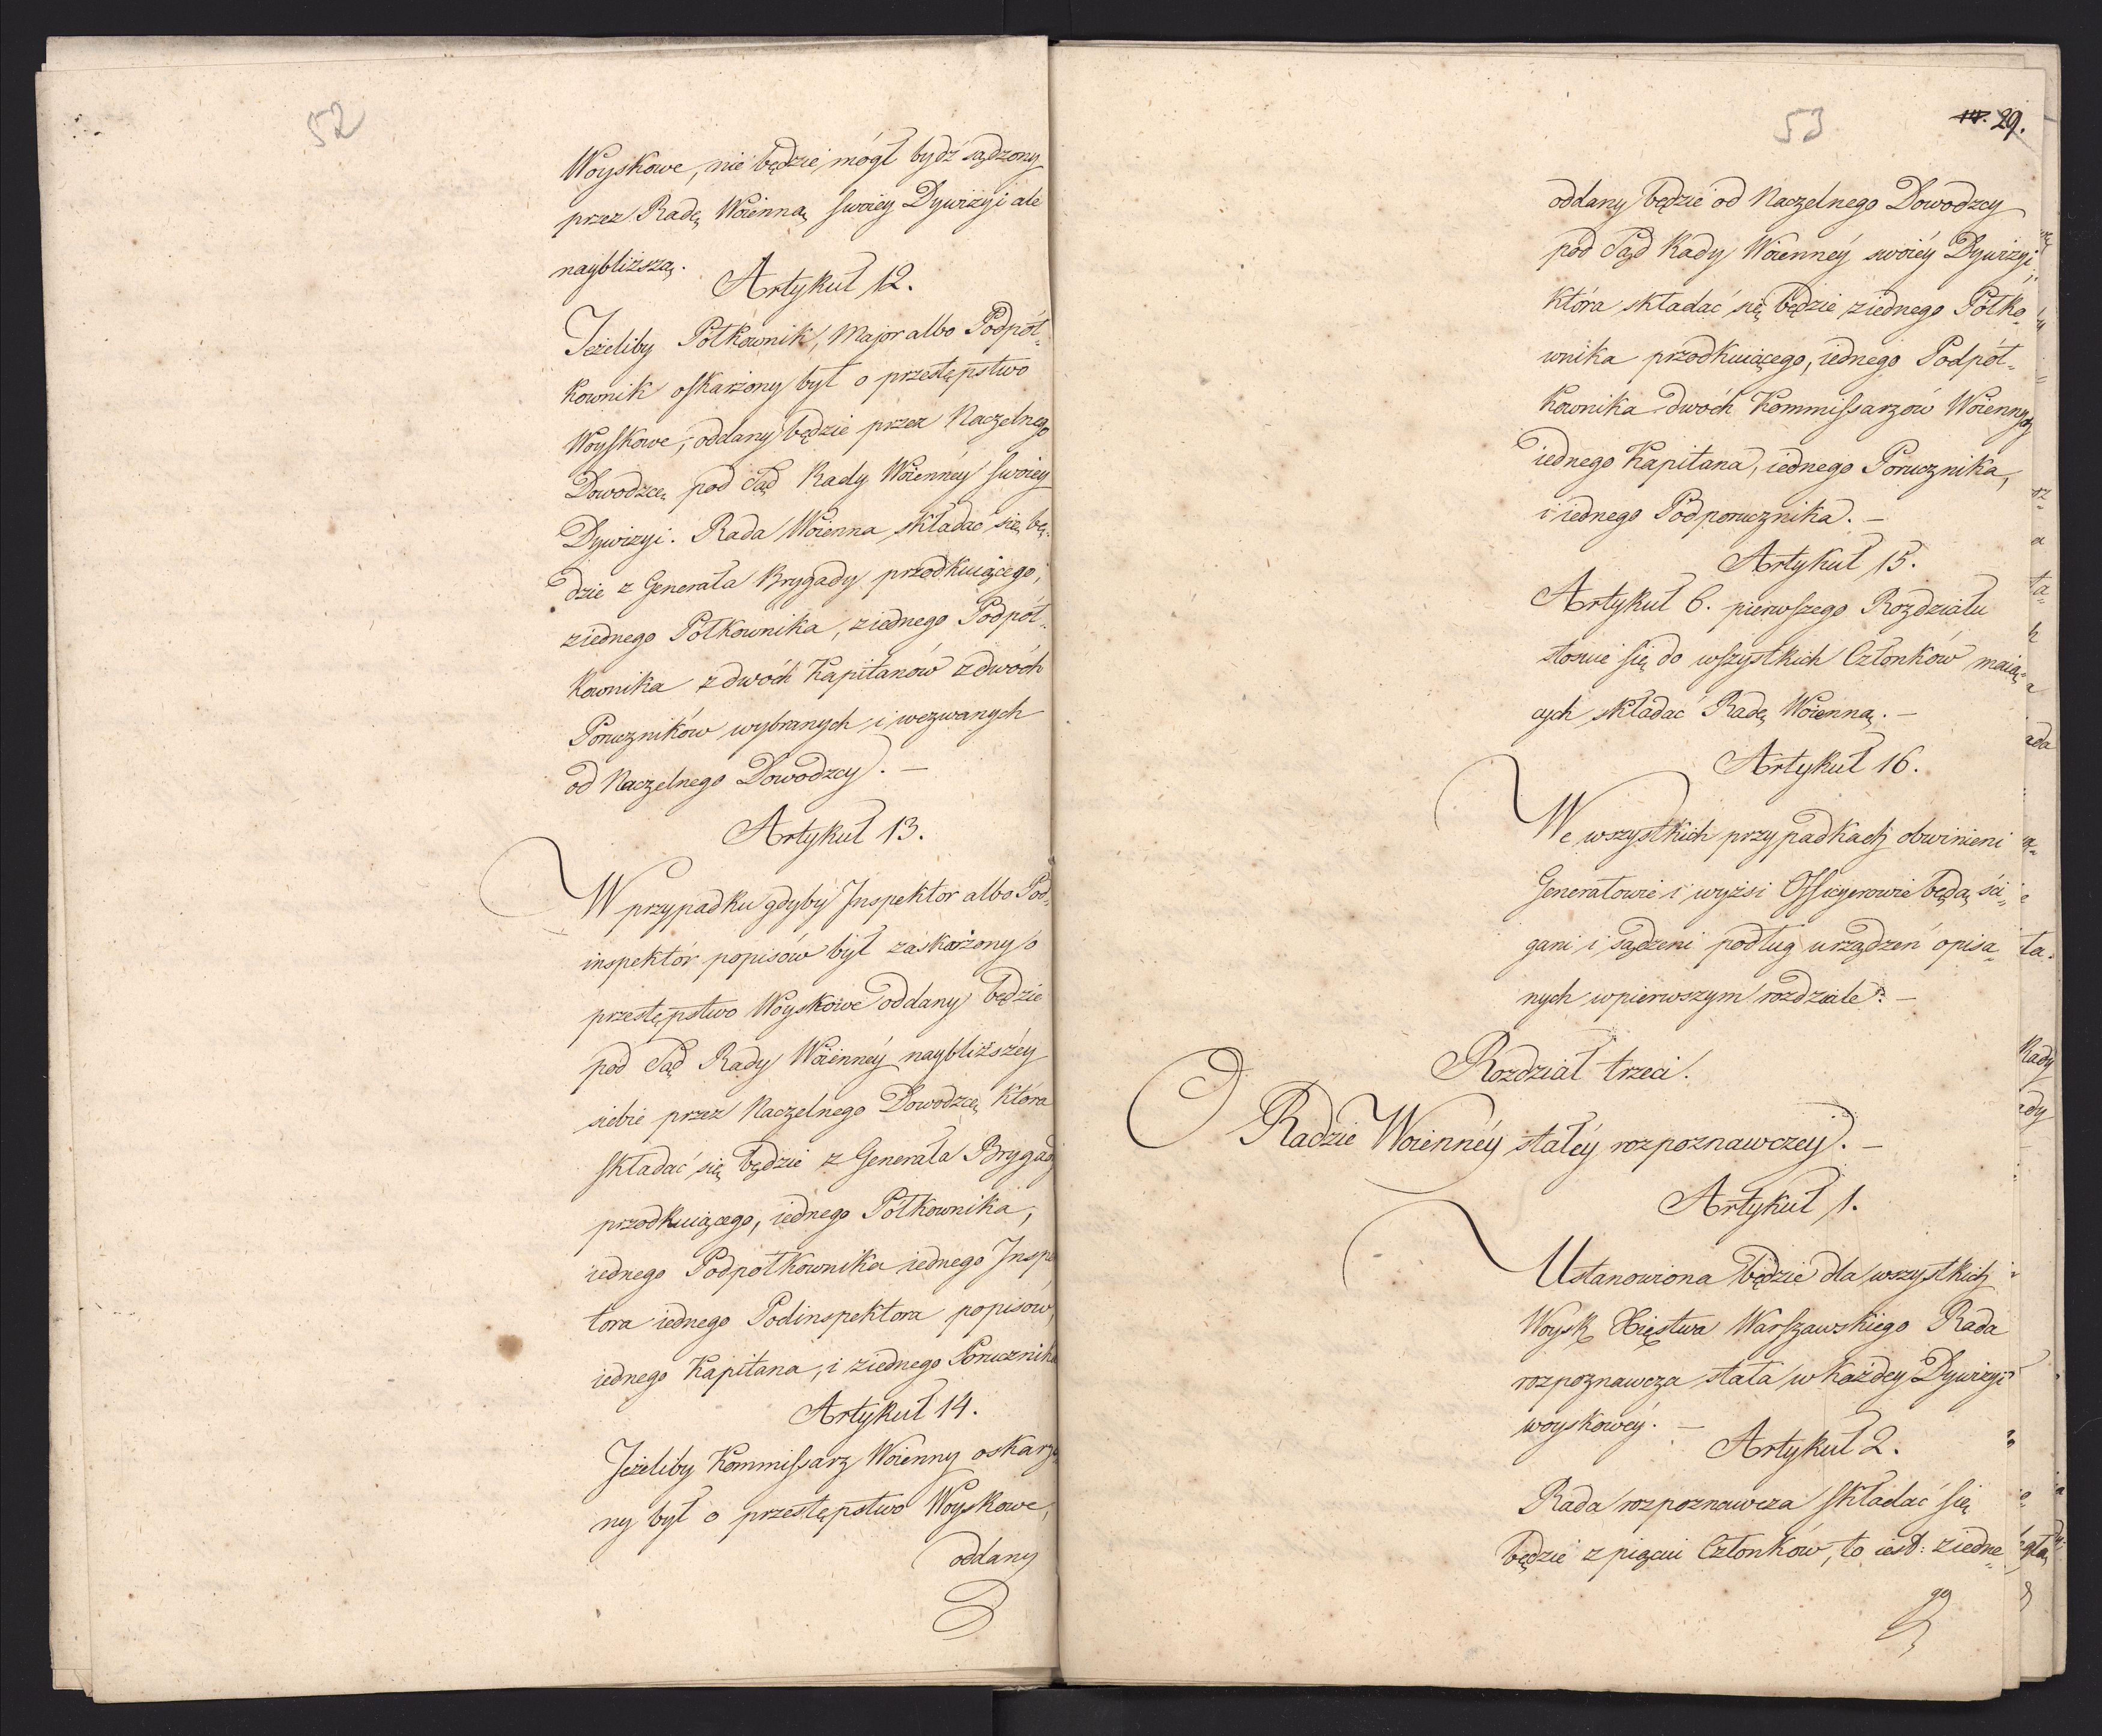 52
Woyskowe, nie będzie mógł bydź sądzony
przez Radę Woienną swoiey Dywizyi ale
naybliższą.
Artykuł 12.
Jeżeliby Półkownik, Major albo Podpół-
kownik oskarżony był o przestępstwo
Woyskowe, oddany będzie przez Naczelnego
Dowodzcę pod Sąd Rady Woienney swoiey
Dywizyi. Rada Woienna składać się bę-
dzie z Generała Brygady przodkuiącego,
ziednego Półkownika, ziednego Podpół-
kownika z dwóch Kapitanów z dwóch
Poruczników wybranych i wezwanych
od Naczelnego Dowodzcy. —
Artykuł 13.
W przypadku gdyby Inspektor albo Pod-
inspektór popisów był zaskarżony o
przestępstwo Woyskowe oddany będzie
pod Sąd Rady Woienney naybliższéy
siebie przez Naczelnego Dowodzcę która
składać się będzie z Generała Brygady
przodkuiącego, iednego Półkownika,
iednego Podpołkownika iednego Inspe
tora iednego Podinspektora popisów,
iednego Kapitana, i ziednego Porucznika
Artykuł 14.
Jeżeliby Kommissarz Woienny oskarżo
ny był o przestępstwo Woyskowe,
oddany
53
29.
oddany będzie od Naczelnego Dowodzcy
pod Sąd Rady Woiennéy swoiéy Dywizyi,
która składać się będzie ziednego Półko-
wnika przodkuiącego, iednego Podpół-
kownika dwóch Kommissarzów Woiennych
iednego Kapitana, iednego Porucznika,
i iednego Podporucznika. —
Artykuł 15.
Artykuł 6. pierwszego Rozdziału
stosuie się do wszystkich Członków maią-
cych składać Radę Woienną. —
Artykuł 16.
We wszystkich przypadkach obwinieni
Generałowie i wyżsi Officyerowie będą ści-
gani i sądzeni podług urządzeń opisa-
nych w pierwszym rozdziale. —
Rozdział trzeci.
O Radzie Woiennéy stałéy rozpoznawczey. —
Artykuł 1.
Ustanowiona będzie dla wszystkich
Woysk Xięstwa Warszawskiego Rada
rozpoznawcza stała w każdey Dywizyi
woyskowéy. —
Artykuł 2.
Rada rozpoznawcza składać się
będzie z pięciu Członków, to iest: ziedne-
go